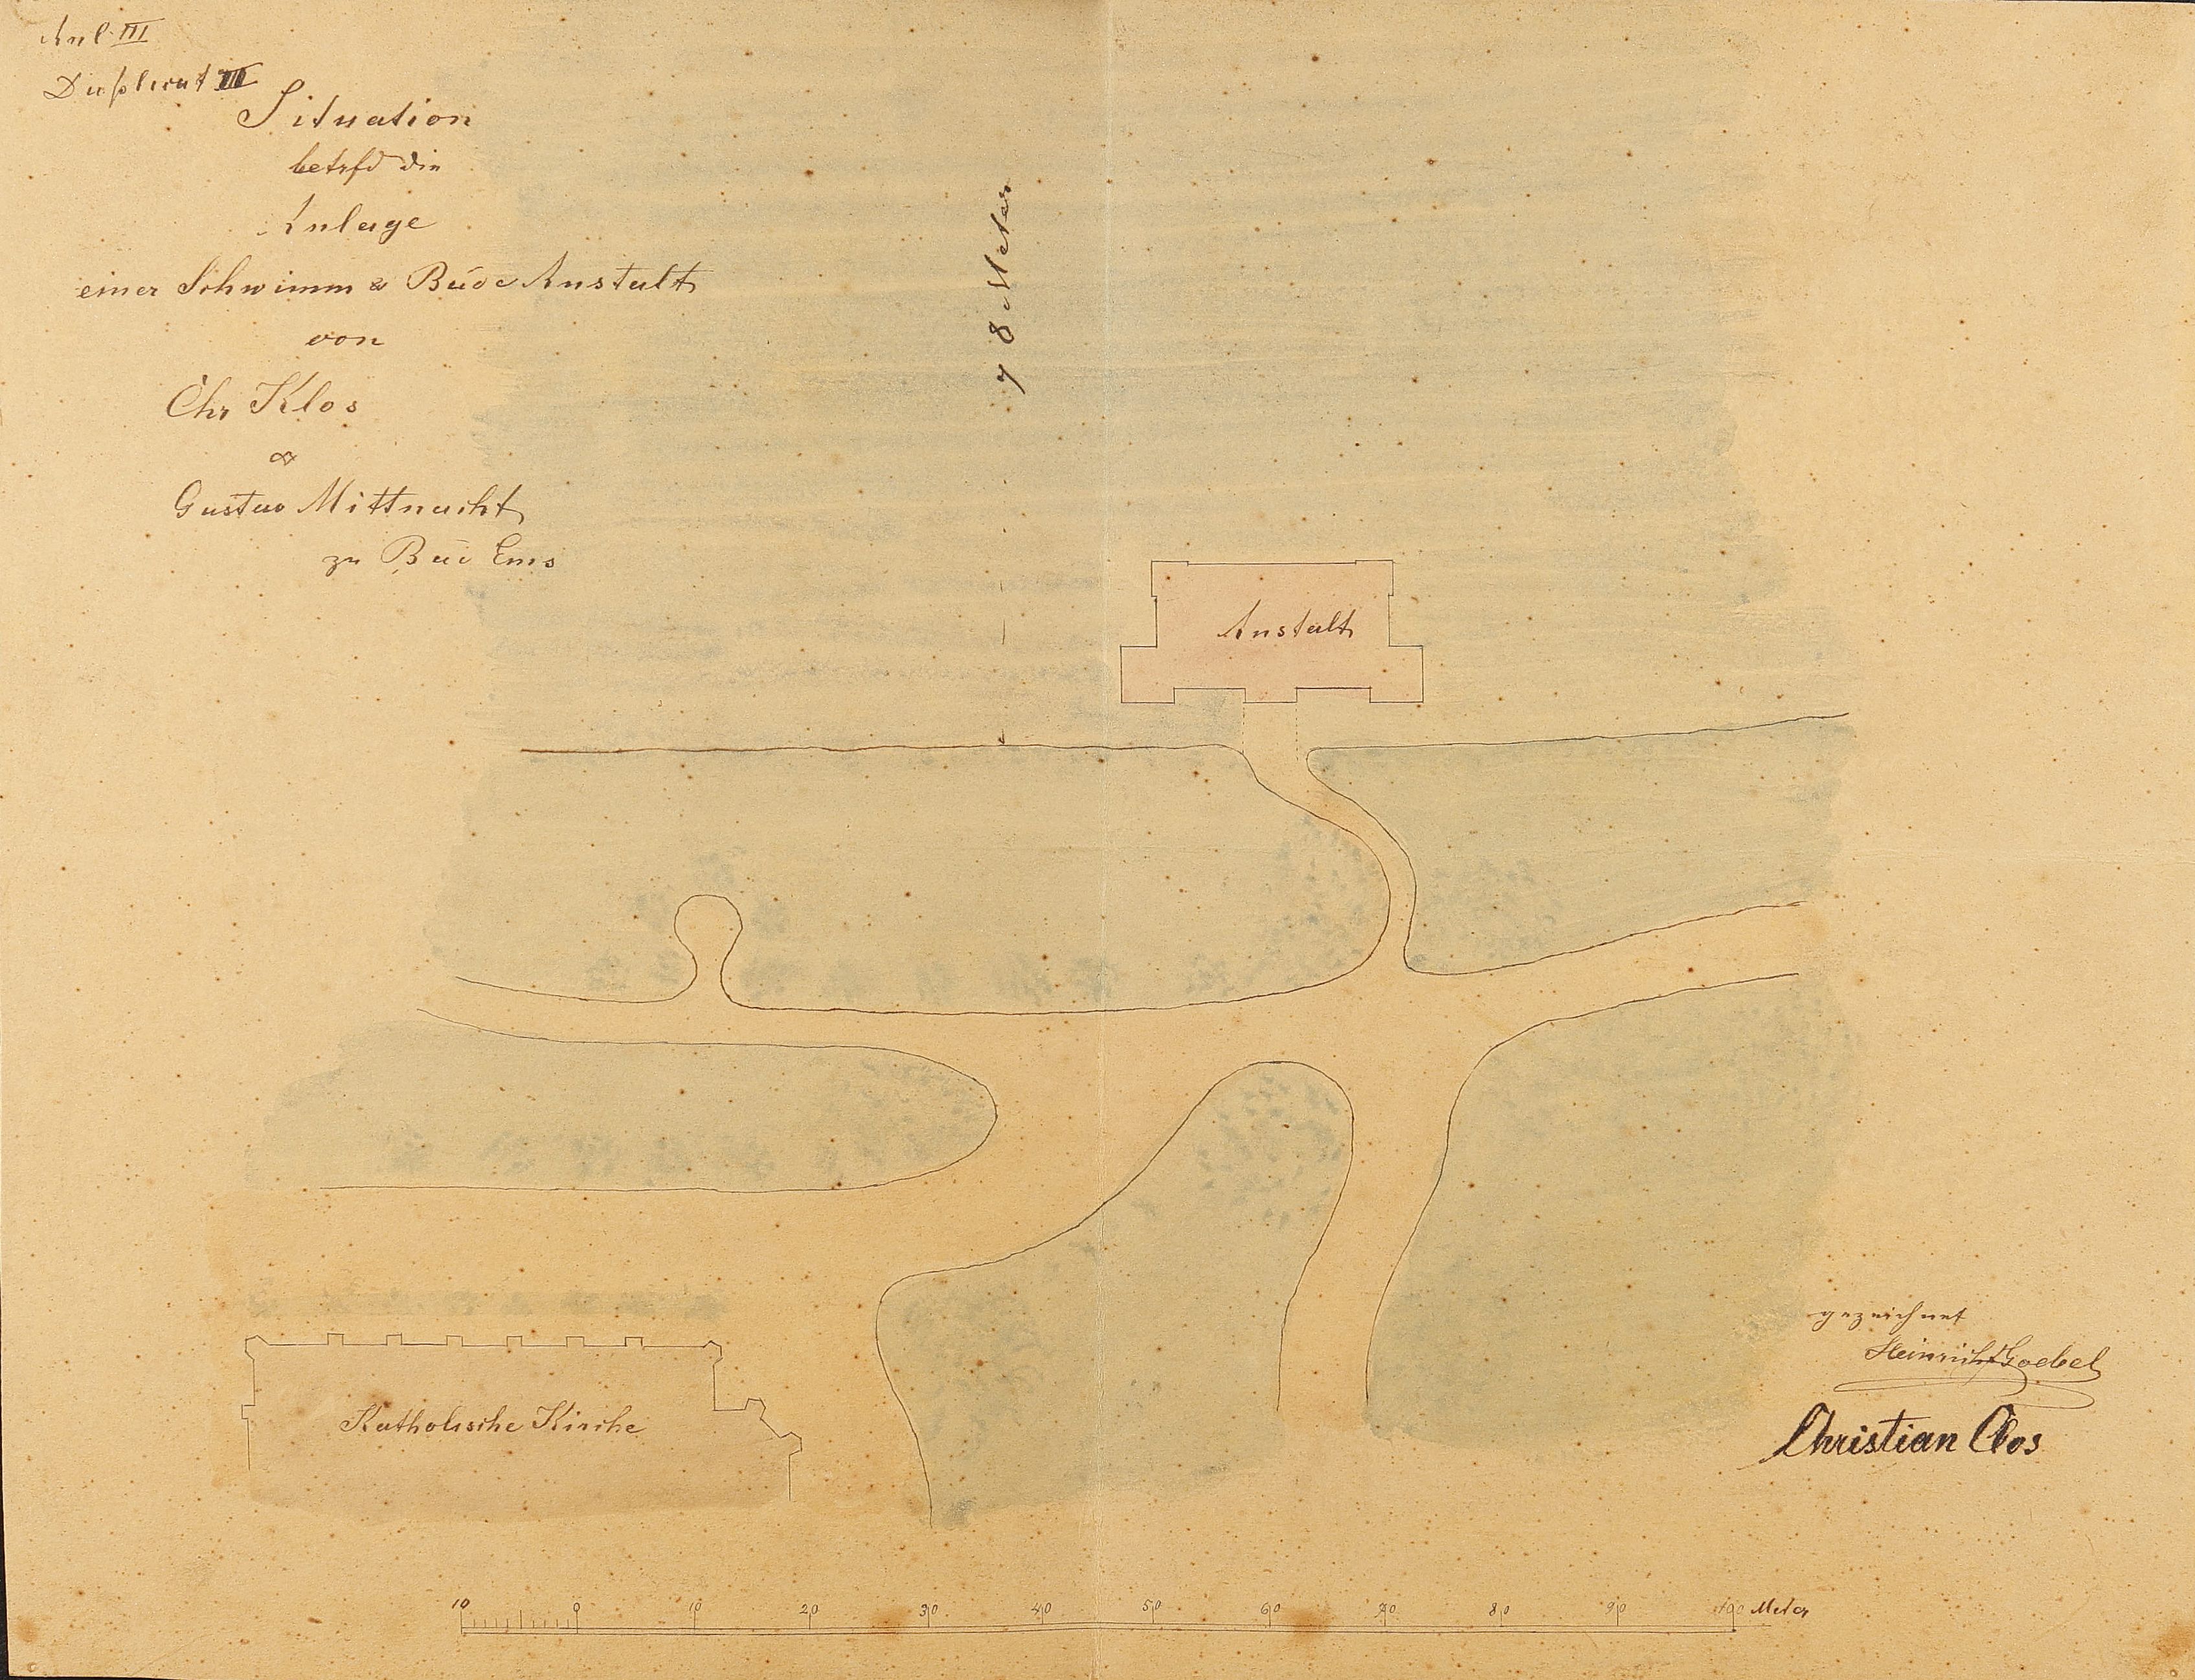 Anl. III
Duplicat III
Situation
betrfd die
Anlage
einer Schwimm & Bade Anstalt
von
Chr Klos
&
Gustav Mittnacht
zu Bad Ems
78 Meter
Anstalt
Katholische Kirche
gezeichnet
Heinrich Goebel
Christian Clos
10 0 10 20 30 40 50 60 70 80 90 100 Meter